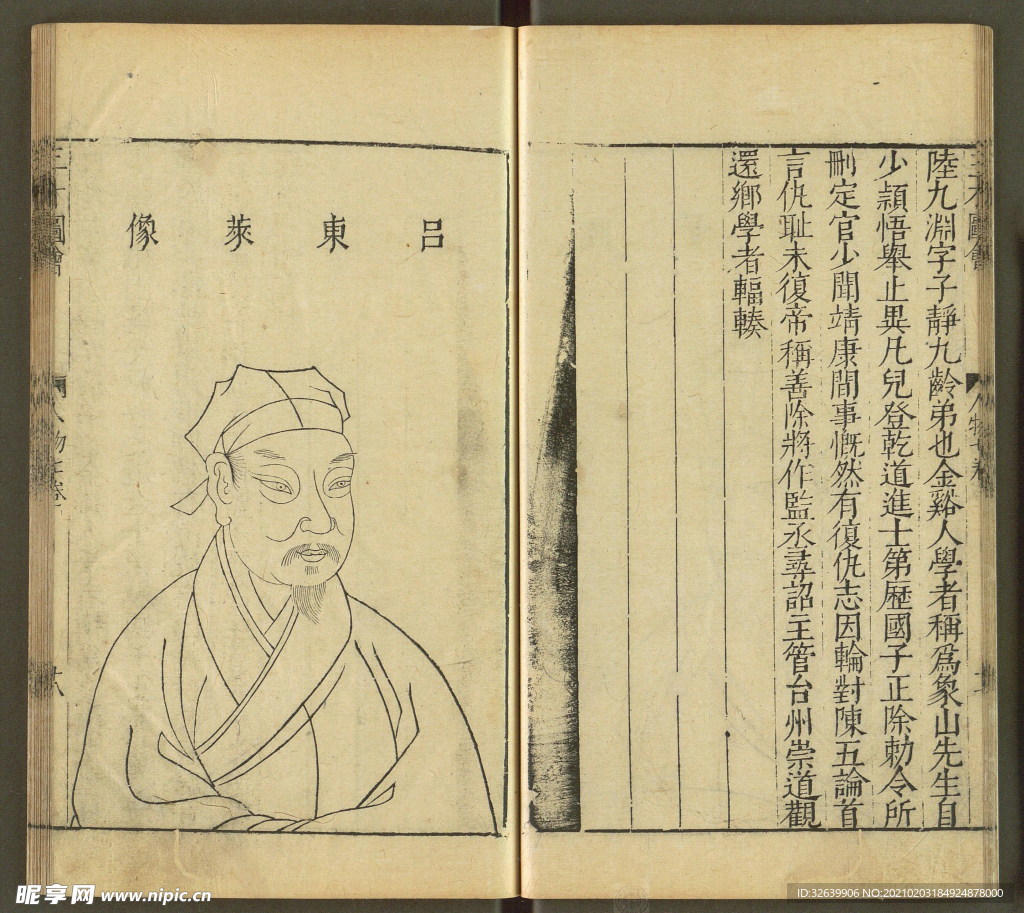 陸九淵字子靜九齡弟也金谿人學者稱爲象山先生自
少頴悟舉止異凡兒登乾道進士第歷國子正除勅令所
刪定官少聞靖康間事慨然有復仇志因輪對陳五論首
言仇耻未復帝稱善除將作監丞尋詔主管台州崇道觀
還鄉學者輻輳
呂東萊像
昵享网 www.nipic.cn
ID:32639906 NO:20210203184924878000